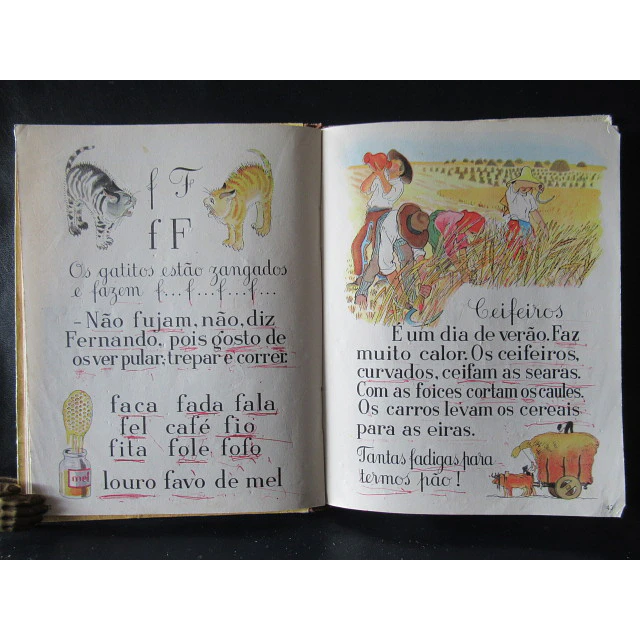 f F
f F
Os gatitos estão zangados
e fazem f... f... f... f...
- Não fujam, não, diz
Fernando, pois gosto de
os ver pular, trepar e correr.
faca fada fala
fel café fio
fita fole fofo
louro favo de mel
mel
Ceifeiros
É um dia de verão. Faz
muito calor. Os ceifeiros,
curvados, ceifam as searas.
Com as foices cortam os caules.
Os carros levam os cereais
para as eiras.
Tantas fadigas para
termos pão!